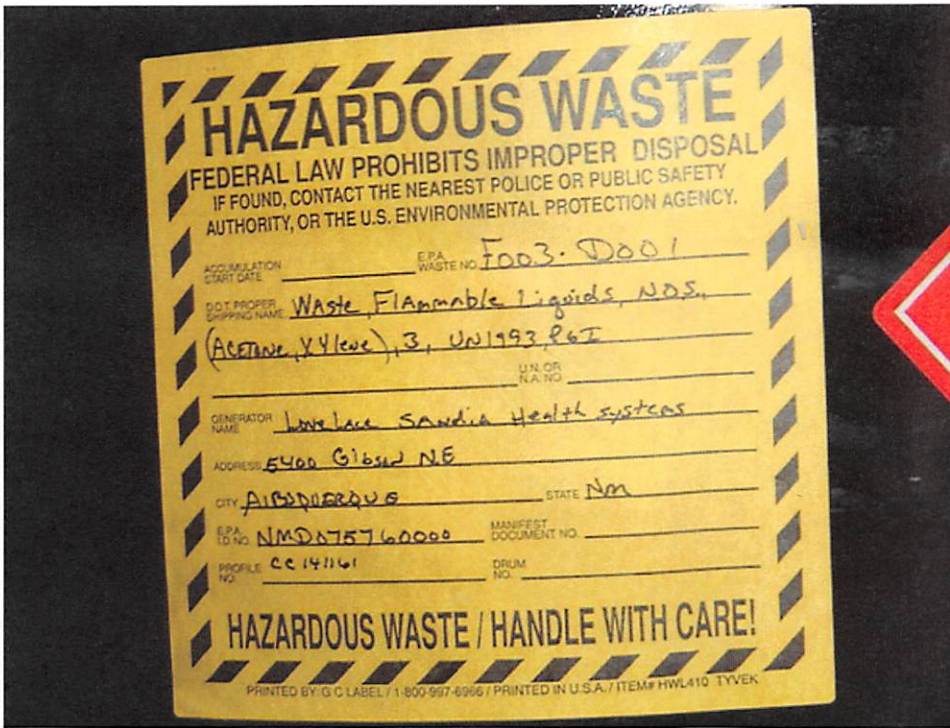 HAZARDOUS WASTE
FEDERAL LAW PROHIBITS IMPROPER DISPOSAL
IF FOUND, CONTACT THE NEAREST POLICE OR PUBLIC SAFETY
AUTHORITY, OR THE U.S. ENVIRONMENTAL PROTECTION AGENCY.
ACCUMULATION START DATE E.P.A. WASTE NO. F003. D001
D.O.T. PROPER SHIPPING NAME Waste, Flammable Liquids, N.O.S.,
(ACETONE, XYlene), 3, UN1993, PGI
U.N. OR N.A. NO.
GENERATOR NAME Lovelace Sandia Health Systems
ADDRESS 5400 Gibson NE
CITY AlBUQUERQUE STATE Nm
E.P.A. I.D. NO. NMD075760000 MANIFEST DOCUMENT NO.
PROFILE NO. CC141161 DRUM NO.
HAZARDOUS WASTE / HANDLE WITH CARE!
PRINTED BY: G C LABEL / 1-800-997-6966 / PRINTED IN U.S.A. / ITEM# HWL410 TYVEK